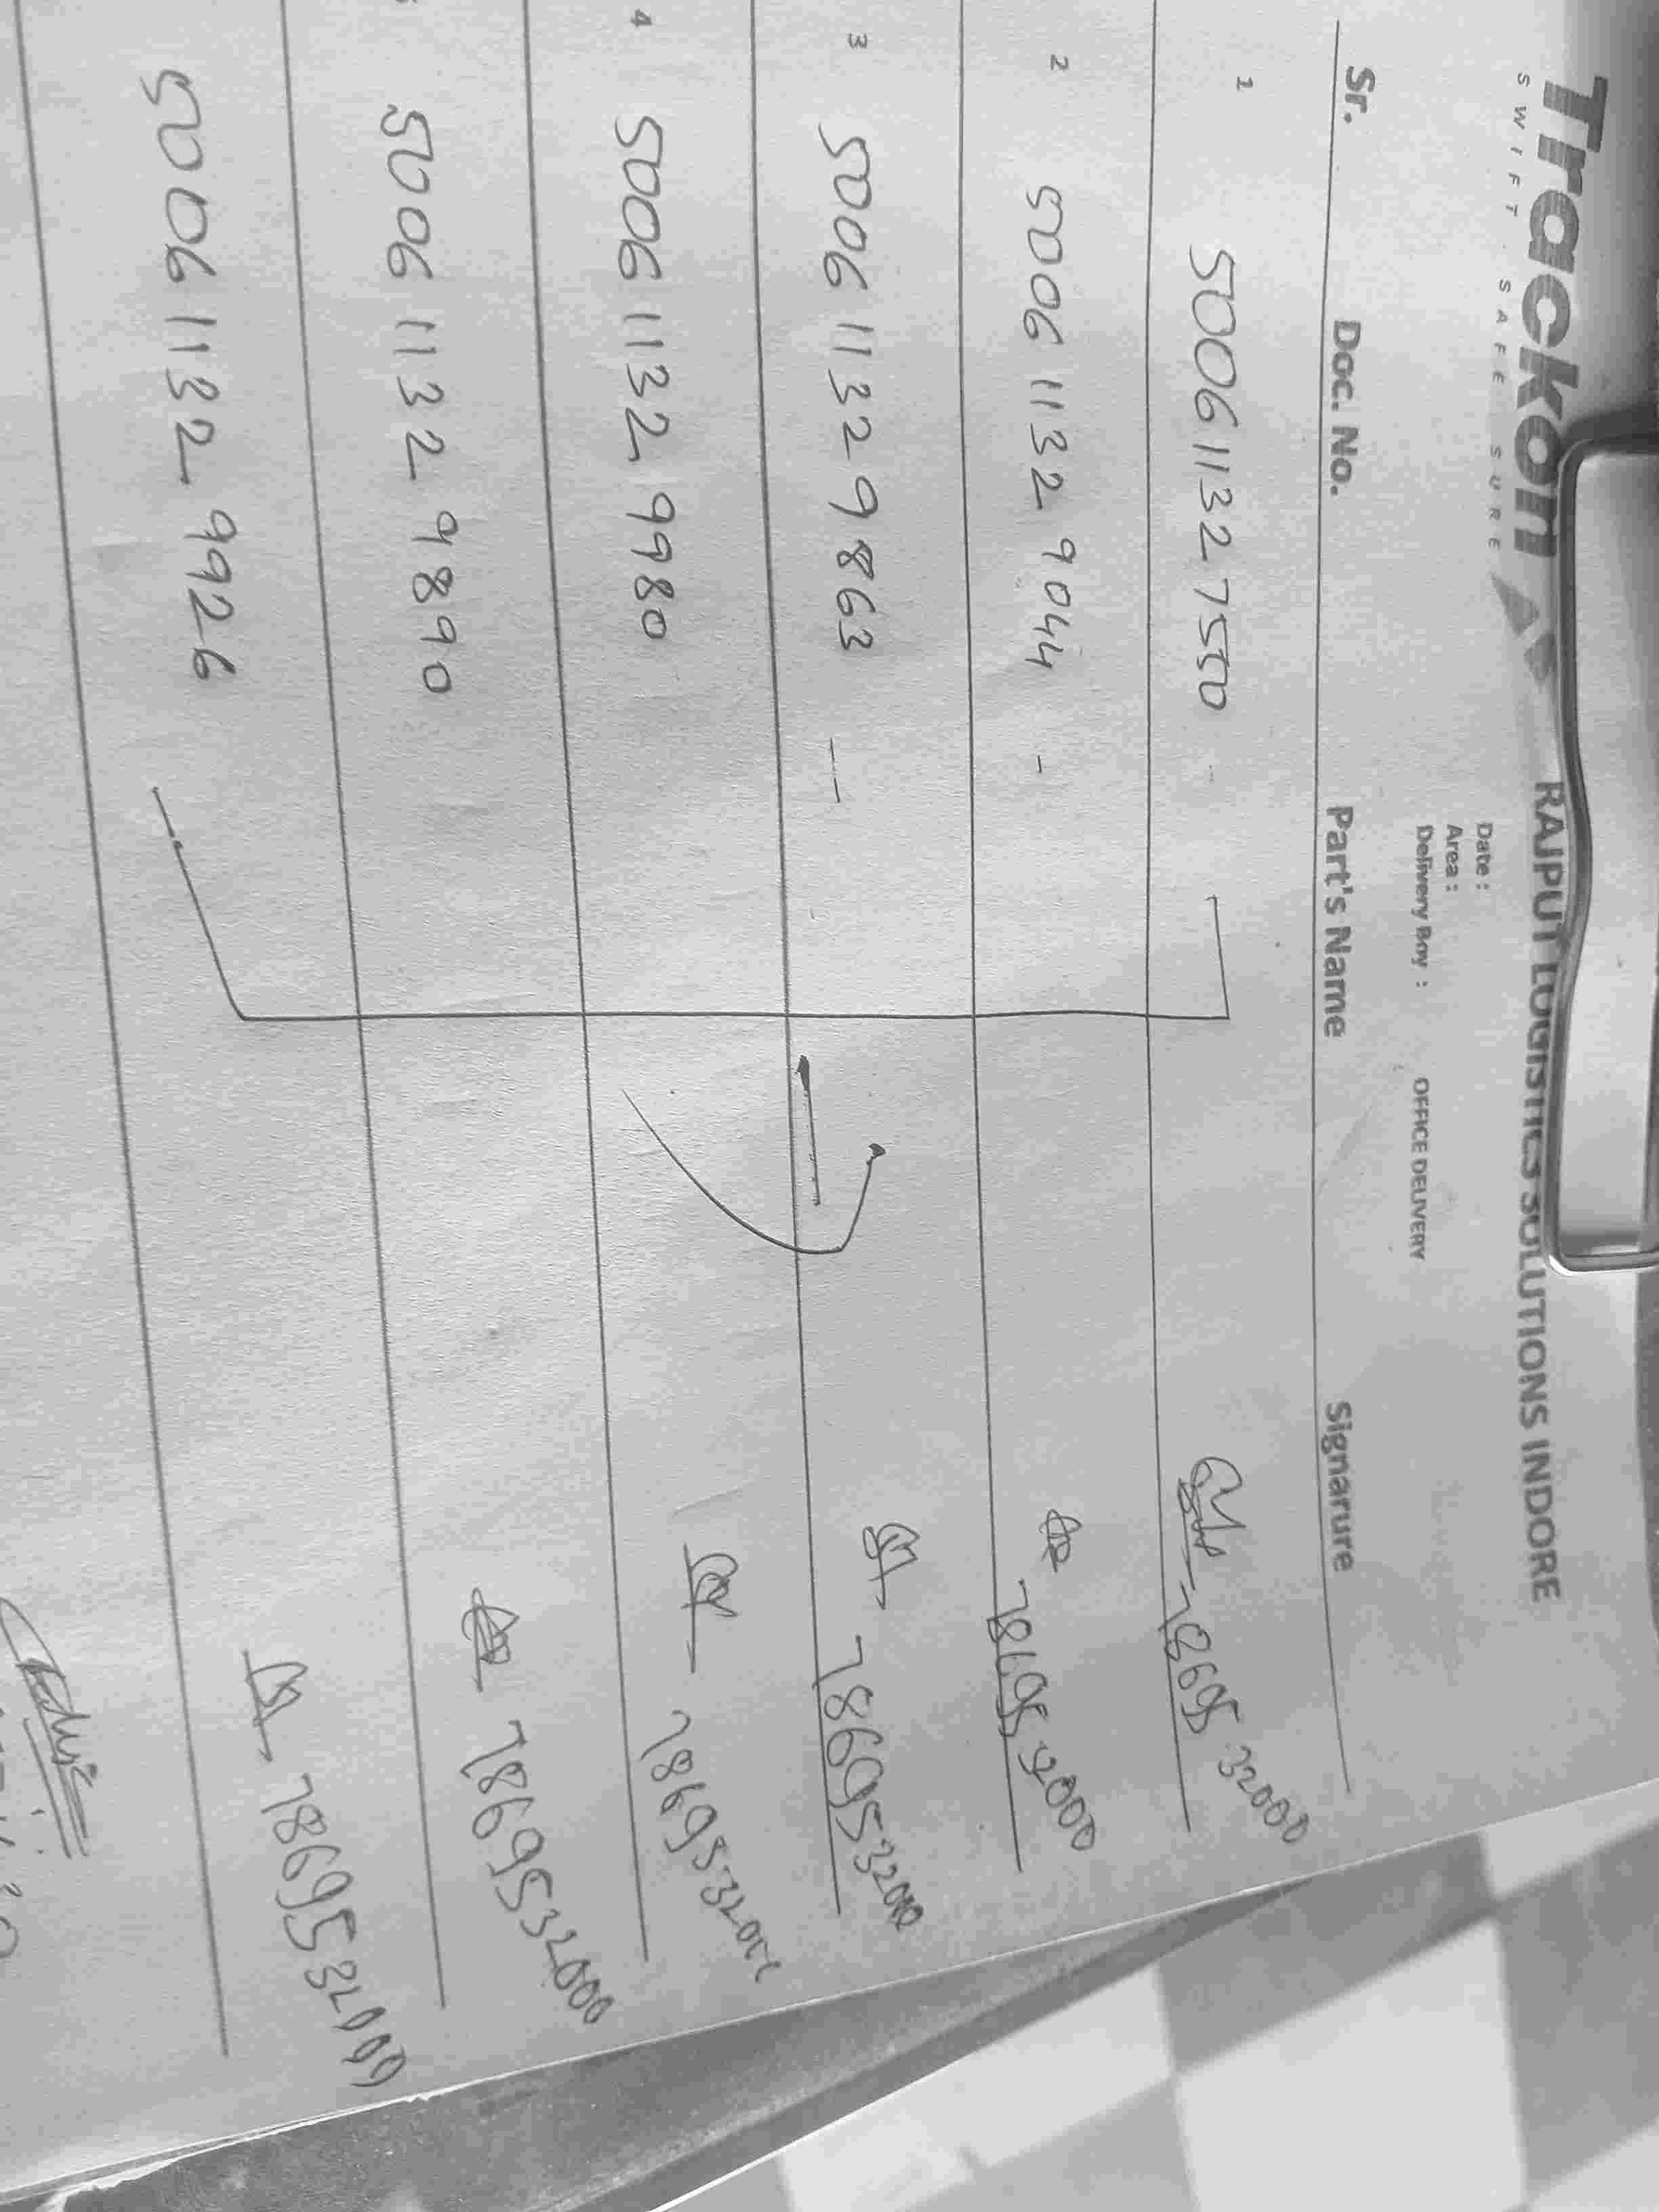 Trackon
SWIFT . SAFE SURE
RAJPUT LOGISTICS SOLUTIONS INDORE
Date :
Area :
Delivery Boy : OFFICE DELIVERY
Sr. Doc. No. Part's Name Signarure
1 500611327550 78695 32000
2 500611329044 - 78695 32000
3 500611329863 7869532000
4 500611329980 78695
500611329890 7869532000
500611329926 7869532000